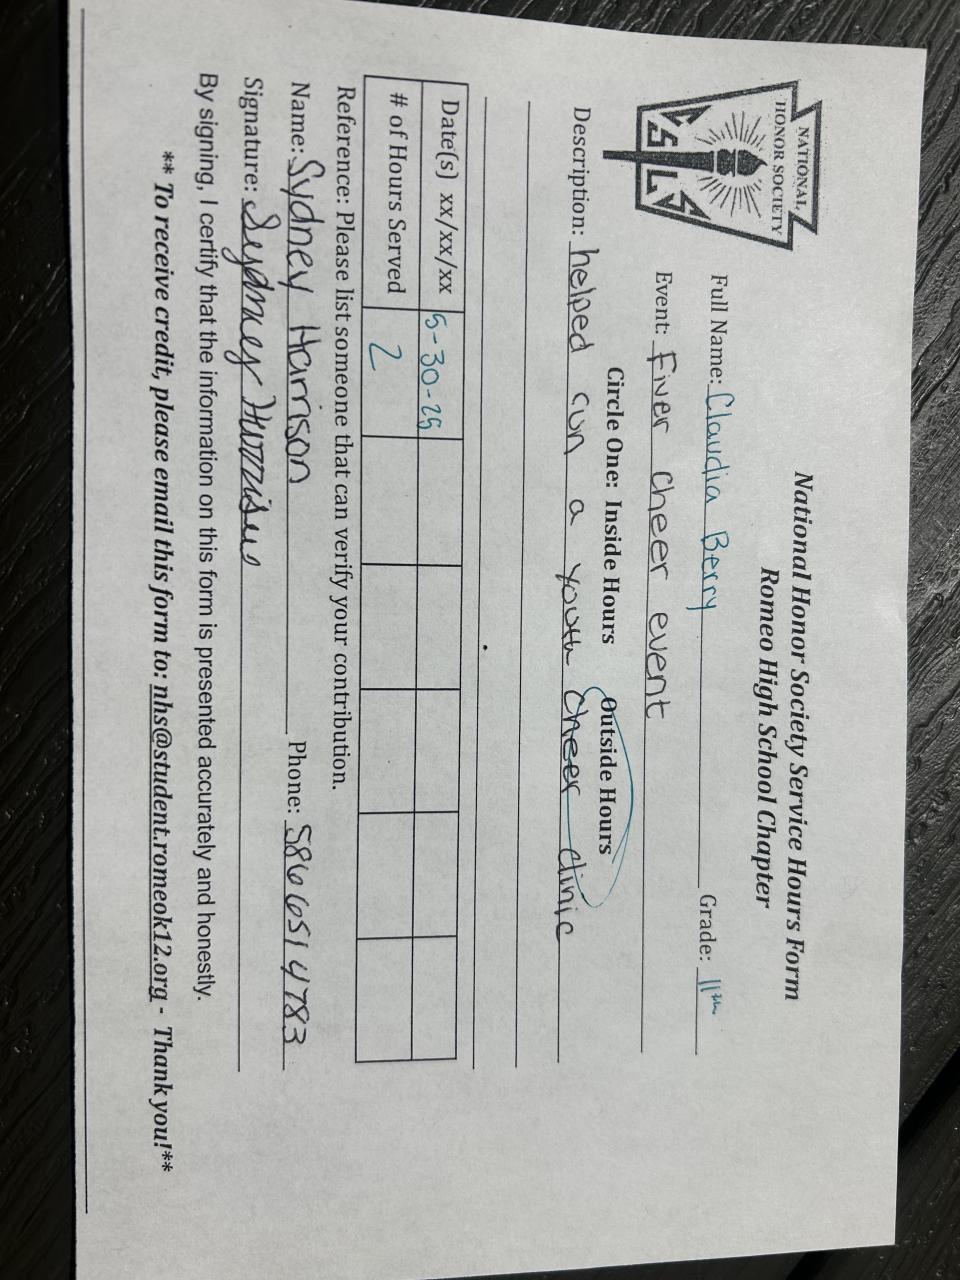 National Honor Society Service Hours Form
Romeo High School Chapter
NATIONAL
HONOR SOCIETY
C S L S
Full Name: Claudia Berry Grade: 11th
Event: Fiver cheer event
Circle One: Inside Hours Outside Hours
Description: helped run a youth cheer clinic
Date(s) xx/xx/xx 5-30-25
# of Hours Served 2
Reference: Please list someone that can verify your contribution.
Name: Sydney Harrison Phone: 5866514783
Signature: Sydney Harrison
By signing, I certify that the information on this form is presented accurately and honestly.
** To receive credit, please email this form to: nhs@student.romeok12.org - Thank you!**